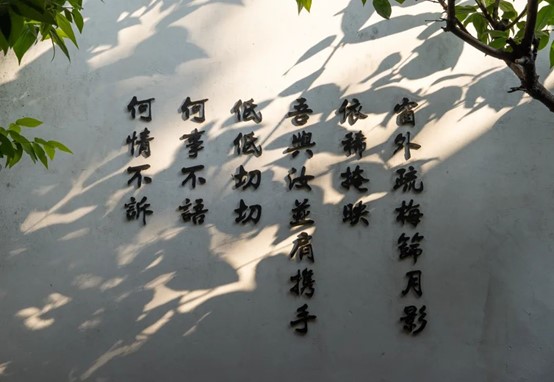 窗外疏梅篩月影
依稀掩映
吾與汝並肩携手
低低切切
何事不語
何情不訴